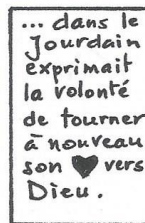 ... dans le
Jourdain
exprimait
la volonté
de tourner
à nouveau
son ♥ vers
Dieu.